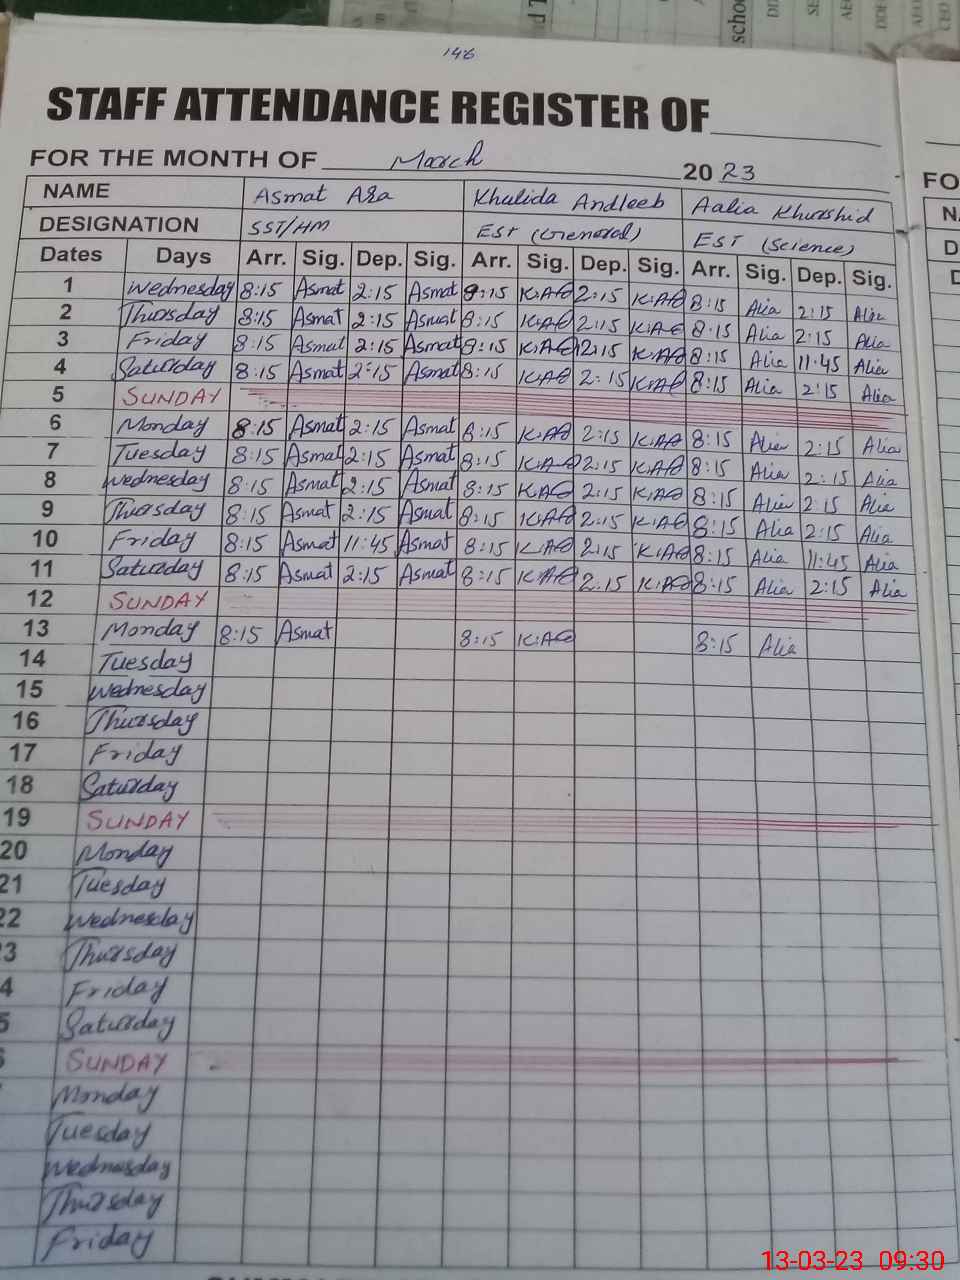 146
STAFF ATTENDANCE REGISTER OF
FOR THE MONTH OF March 2023
NAME Asmat Ara Khulida Andleeb Aalia Khurshid
DESIGNATION SST/HM EST (General) EST (Science)
Dates Days Arr. Sig. Dep. Sig. Arr. Sig. Dep. Sig. Arr. Sig. Dep. Sig.
1 Wednesday 8:15 Asmat 2:15 Asmat 8:15 K.A 2:15 K.A 8:15 Alia 2:15 Alia
2 Thursday 8:15 Asmat 2:15 Asmat 8:15 K.A 2:15 K.A 8:15 Alia 2:15 Alia
3 Friday 8:15 Asmat 2:15 Asmat 8:15 K.A 12:15 K.A 8:15 Alia 11:45 Alia
4 Saturday 8:15 Asmat 2:15 Asmat 8:15 K.A 2:15 K.A 8:15 Alia 2:15 Alia
5 SUNDAY
6 Monday 8:15 Asmat 2:15 Asmat 8:15 K.A 2:15 K.A 8:15 Alia 2:15 Alia
7 Tuesday 8:15 Asmat 2:15 Asmat 8:15 K.A 2:15 K.A 8:15 Alia 2:15 Alia
8 Wednesday 8:15 Asmat 2:15 Asmat 8:15 K.A 2:15 K.A 8:15 Alia 2:15 Alia
9 Thursday 8:15 Asmat 2:15 Asmat 8:15 K.A 2:15 K.A 8:15 Alia 2:15 Alia
10 Friday 8:15 Asmat 11:45 Asmat 8:15 K.A 2:15 K.A 8:15 Alia 11:45 Alia
11 Saturday 8:15 Asmat 2:15 Asmat 8:15 K.A 2:15 K.A 8:15 Alia 2:15 Alia
12 SUNDAY
13 Monday 8:15 Asmat 8:15 K.A 8:15 Alia
14 Tuesday
15 Wednesday
16 Thursday
17 Friday
18 Saturday
19 SUNDAY
20 Monday
21 Tuesday
22 Wednesday
3 Thursday
4 Friday
5 Saturday
SUNDAY
Monday
Tuesday
Wednesday
Thursday
Friday
13-03-23 09:30